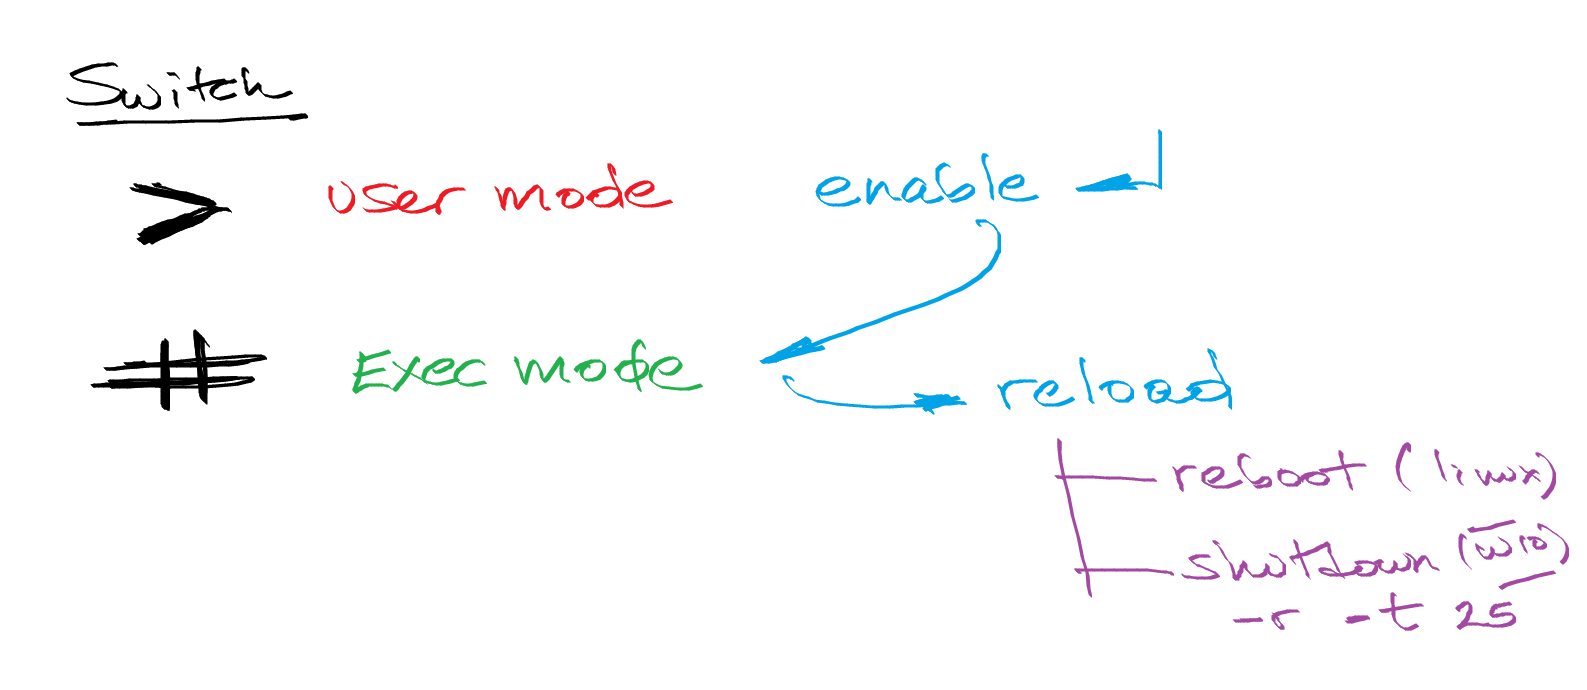 Switch
> user mode enable
# Exec mode
reload
reboot (linux)
shutdown (w10)
-r -t 25